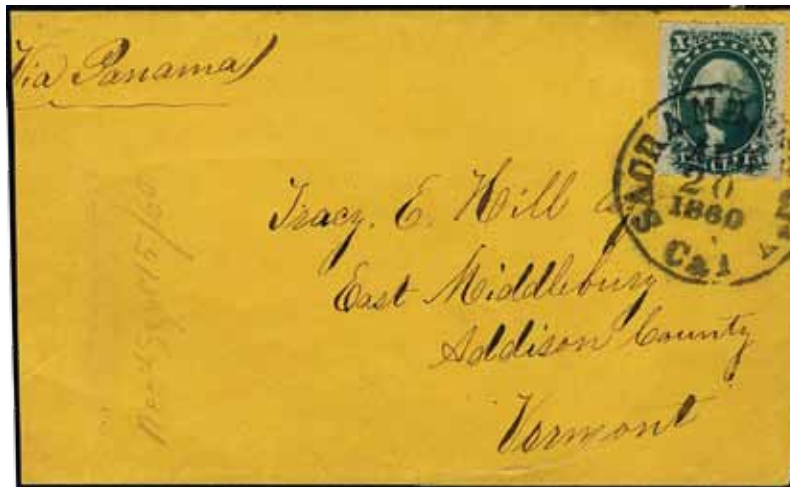 Via Panama
X X
SACRAMENTO
20
1860
Cal
Tracy. E. Hill
East Middlebury
Addison County
Vermont